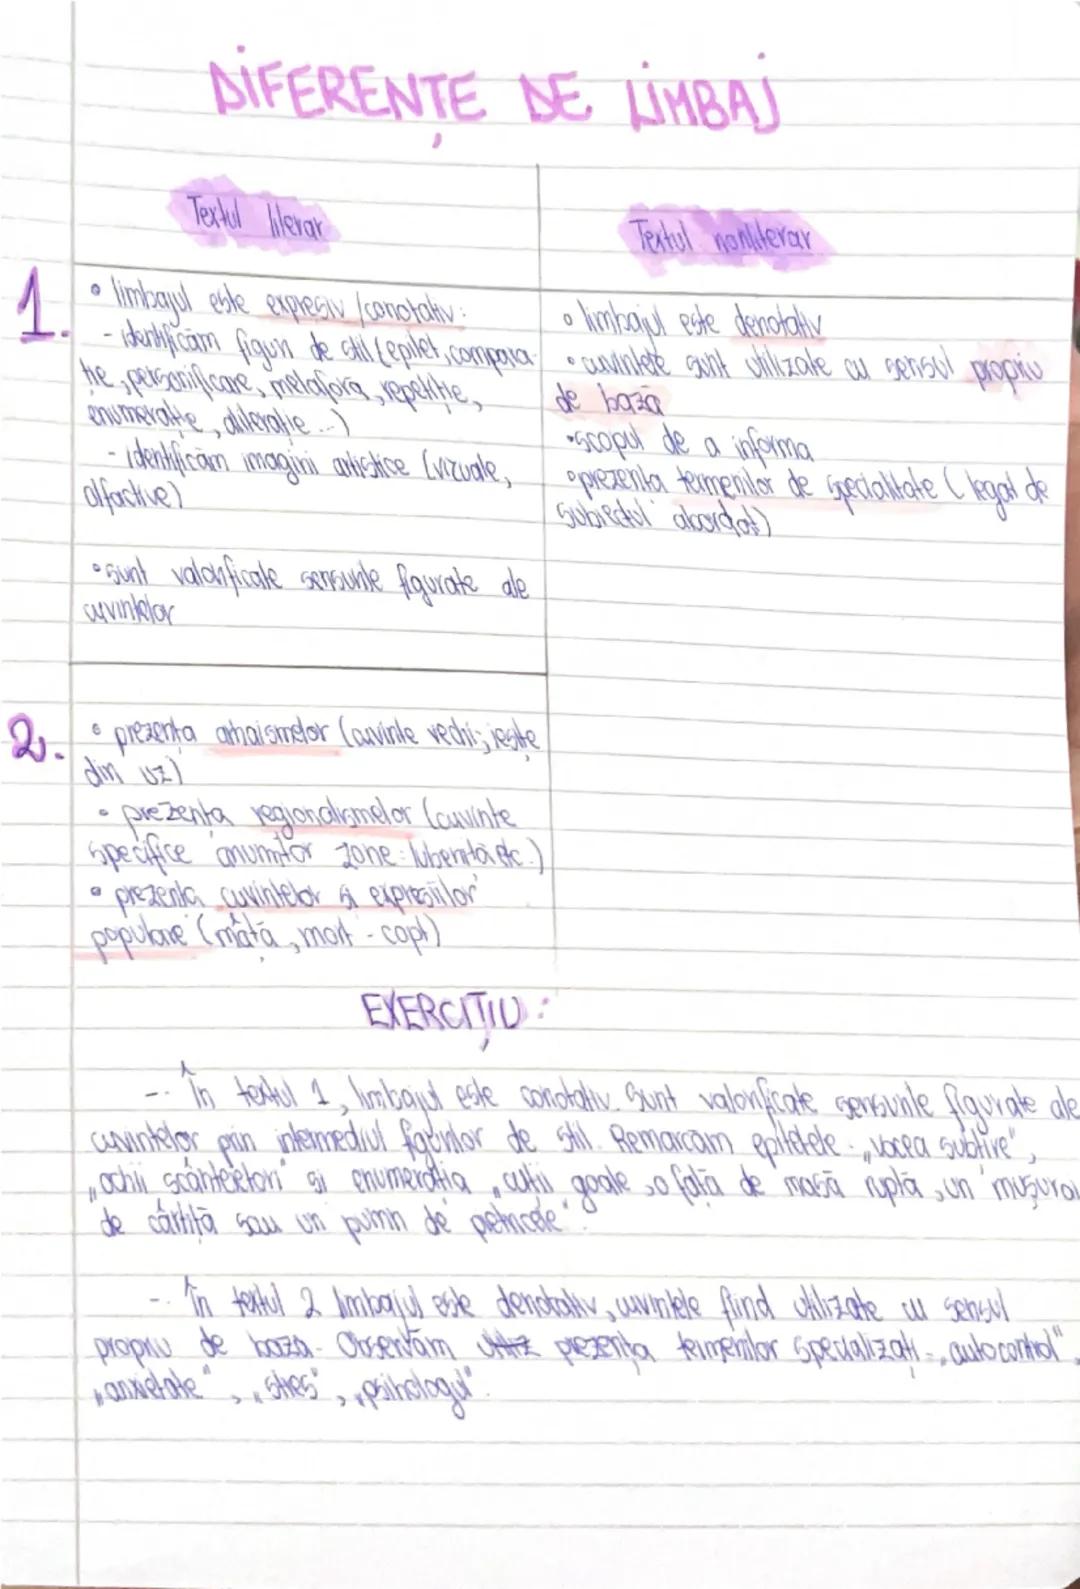 DIFERENȚE DE LIMBAJ
Textul literar
Textul nonliterar
1.
• limbajul este expresiv /conotativ:
- identificăm figuri de stil (epitet, compara-
ție, personificare, metafora, repetiție,
enumerație, aliterație ...)
- identificăm imagini artistice (vizuale,
olfactive)
• sunt valorificate sensurile figurate ale
cuvintelor
• limbajul este denotativ
• cuvintele sunt utilizate cu sensul propriu
de bază
• scopul de a informa
• prezența termenilor de specialitate (legat de
subiectul abordat)
2.
• prezența arhaismelor (cuvinte vechi; ieșite
din uz)
• prezența regionalismelor (cuvinte
specifice anumitor zone: lubeniță etc.)
• prezența cuvintelor și expresiilor
populare (mâță, mort - copt)
EXERCIȚIU:
-. În textul 1, limbajul este conotativ. Sunt valorificate sensurile figurate ale
cuvintelor prin intermediul figurilor de stil. Remarcăm epitetele: „vocea subțire",
„ochii scânteietori" și enumerația „cutii goale, o față de masă ruptă, un mușuroi
de cârtiță sau un pumn de pietricele".
-. În textul 2 limbajul este denotativ, cuvintele fiind utilizate cu sensul
propriu de baza. Observăm prezența termenilor specializați - „autocontrol",
„anxietate", „stres", „psihologul".